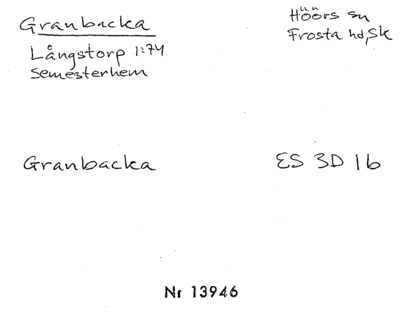 Granbacka
Höörs sn
Långstorp 1:74
Frosta hd, Sk
Semesterhem
Granbacka
ES 3D 1b
Nr 13946